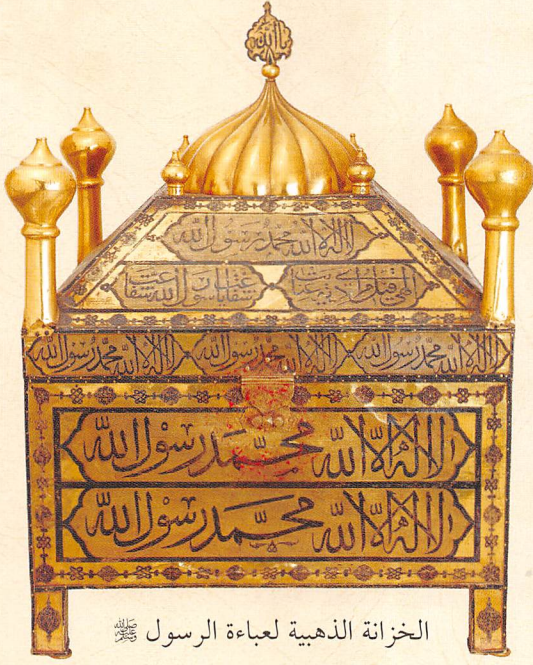 يا الله
لا اله الا الله محمد رسول الله
شفاعت يا رسول الله شفاعت
لا اله الا الله محمد رسول الله لا اله الا الله محمد رسول الله لا اله الا الله محمد رسول الله
لا اله الا الله محمد رسول الله
لا اله الا الله محمد رسول الله
الخزانة الذهبية لعباءة الرسول ﷺ